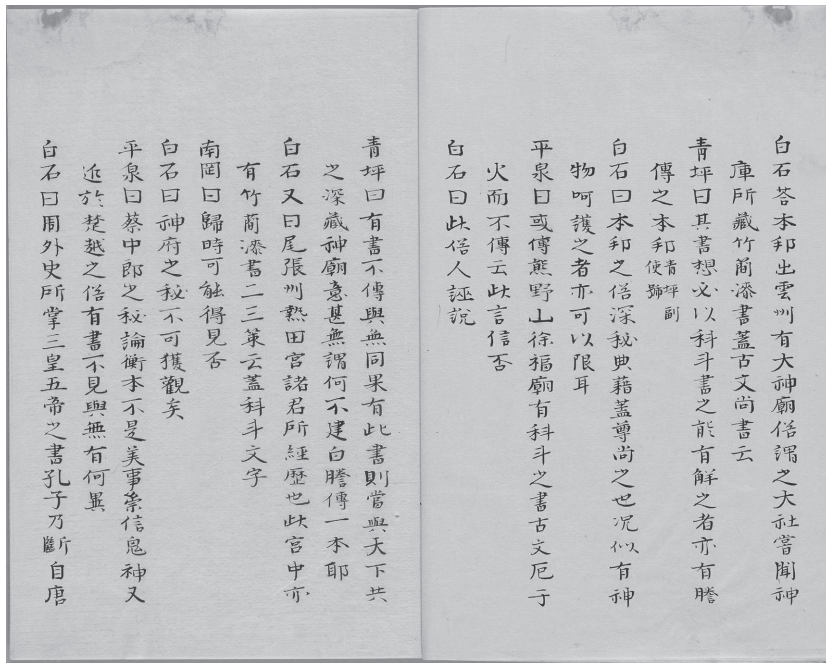 白石荅本邦出雲州有大神廟俗謂之大社嘗聞神
庫所藏竹簡漆書蓋古文尚書云
青坪曰其書想必以科斗書之能有解之者亦有謄
傳之本邦青坪副使號
白石曰本邦之俗深秘典藉蓋尊尚之也况似有神
物呵護之者亦可以限耳
平泉曰或傳熊野山徐福廟有科斗之書古文厄于
火而不傳云此言信否
白石曰此俗人誣說
青坪曰有書不傳與無同果有此書則當與天下共
之深藏神廟意甚無謂何不建白謄傳一本耶
白石又曰尾張州熱田宮諸君所經歷也此宮中亦
有竹簡漆書二三策云蓋科斗文字
南岡曰歸時可能得見否
白石曰神府之秘不可獲觀矣
平泉曰蔡中郎之秘論衡本不是美事崇信鬼神又
近於楚越之俗有書不見與無有何異
白石曰周外史所掌三皇五帝之書孔子乃斷自唐